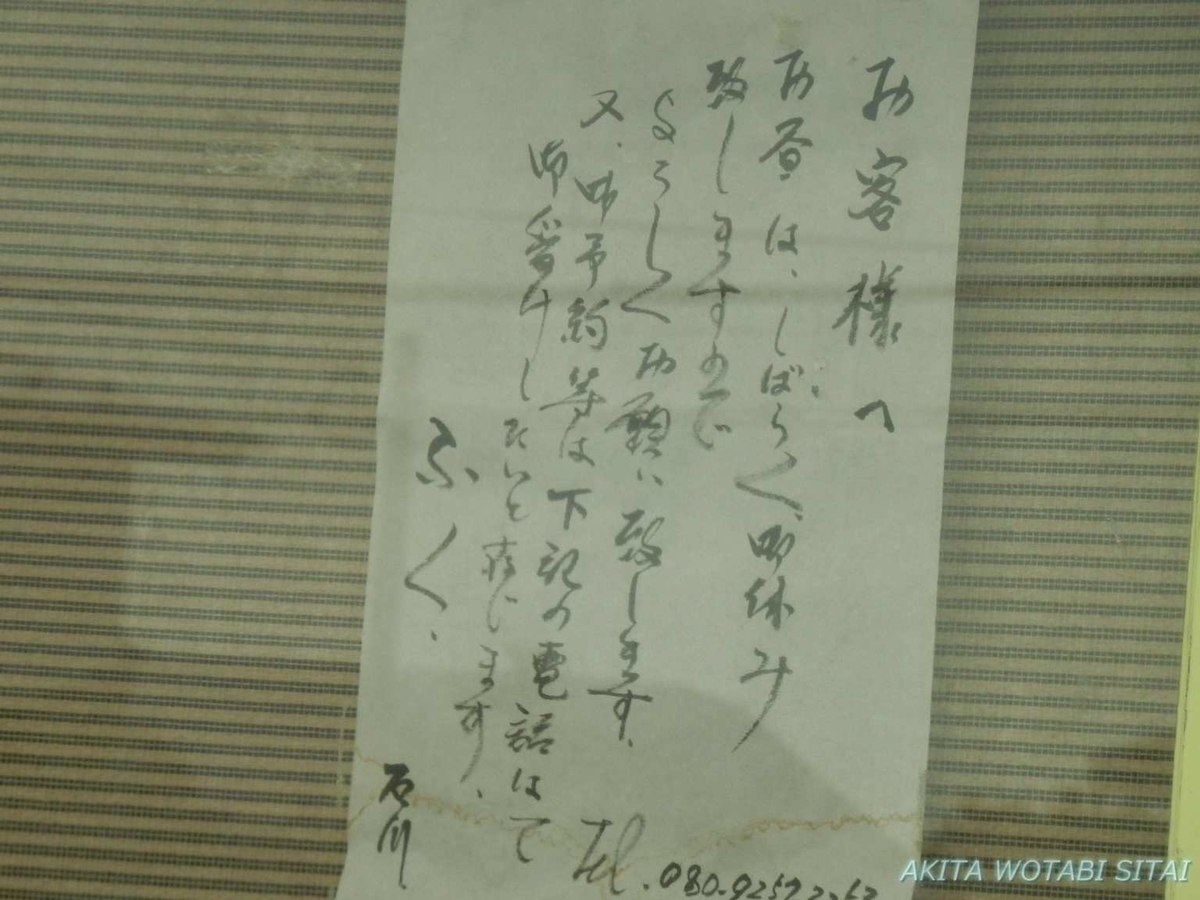 お客様へ
お昼は、しばらく御休み
致しますので
よろしくお願い致します、
又、御予約等は下記の電話はて
御受けしたいと存じます、
ふく、
石川
Tel. 080-9257
AKITA WOTABI SITAI